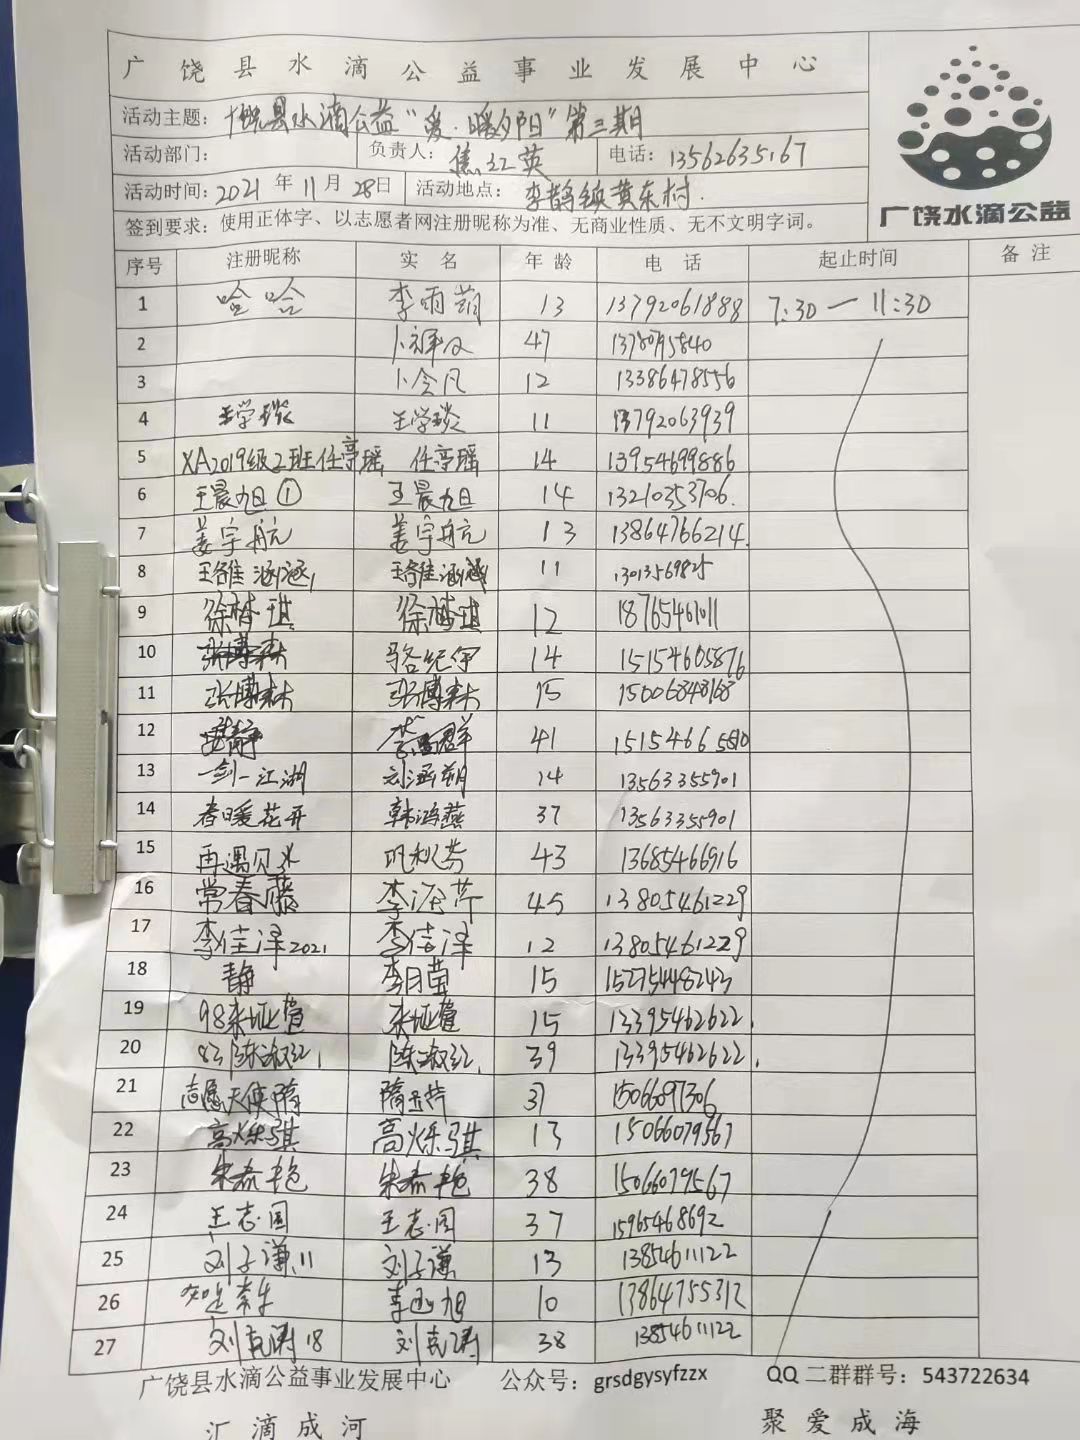 广饶县水滴公益事业发展中心
活动主题: 广饶县水滴公益“爱·暖夕阳”第三期
活动部门: 负责人: 焦红英 电话: 13562635167
活动时间: 2021年11月28日 活动地点: 李鹊镇黄东村.
签到要求: 使用正体字、以志愿者网注册昵称为准、无商业性质、无不文明字词。
广饶水滴公益
序号 注册昵称 实名 年龄 电话 起止时间 备注
1 哈哈 李雨 13 13792061888 7:30—11:30
2 卜 47
3 卜令凡 12 13386478556
4 王学琰 王学琰 11 13792063939
5 XA2019级2班任亭瑶 任亭瑶 14 13954699886
6 王晨旭① 王晨旭 14 13210353706.
7 姜宇航 姜宇航 13 13864766214.
8 11 13013569825
9 徐梓琪 徐梓琪 12 18765461011
10 骆纪伊 14 15154605876
11 张博森 张博森 15 15006848168
12 41
13 一剑一江湖 刘涵朔 14 13563355901
14 春暖花开 韩鸿燕 37 13563355901
15 再遇见 秋芬 43 13685466916
16 常春藤 李 45 13805461229
17 李佳泽2021 李佳泽 12 13805461229
18 静 李月莹 15 15275448243
19 98 15 13395462622.
20 83陈淑红1 陈淑红 39 13395462622.
21 志愿天使隋 隋 1506609
22 高烁骐 高烁骐 13 15066079567
23 38 15066079567
24 王志国 王志国 37 15965468692
25 刘子谦11 刘子谦 13 13854611122
26 旭 10 13864755312
27 刘克涛18 刘克涛 38 13854611122
广饶县水滴公益事业发展中心 公众号: grsdgysyfzzx QQ二群群号: 543722634
汇滴成河 聚爱成海